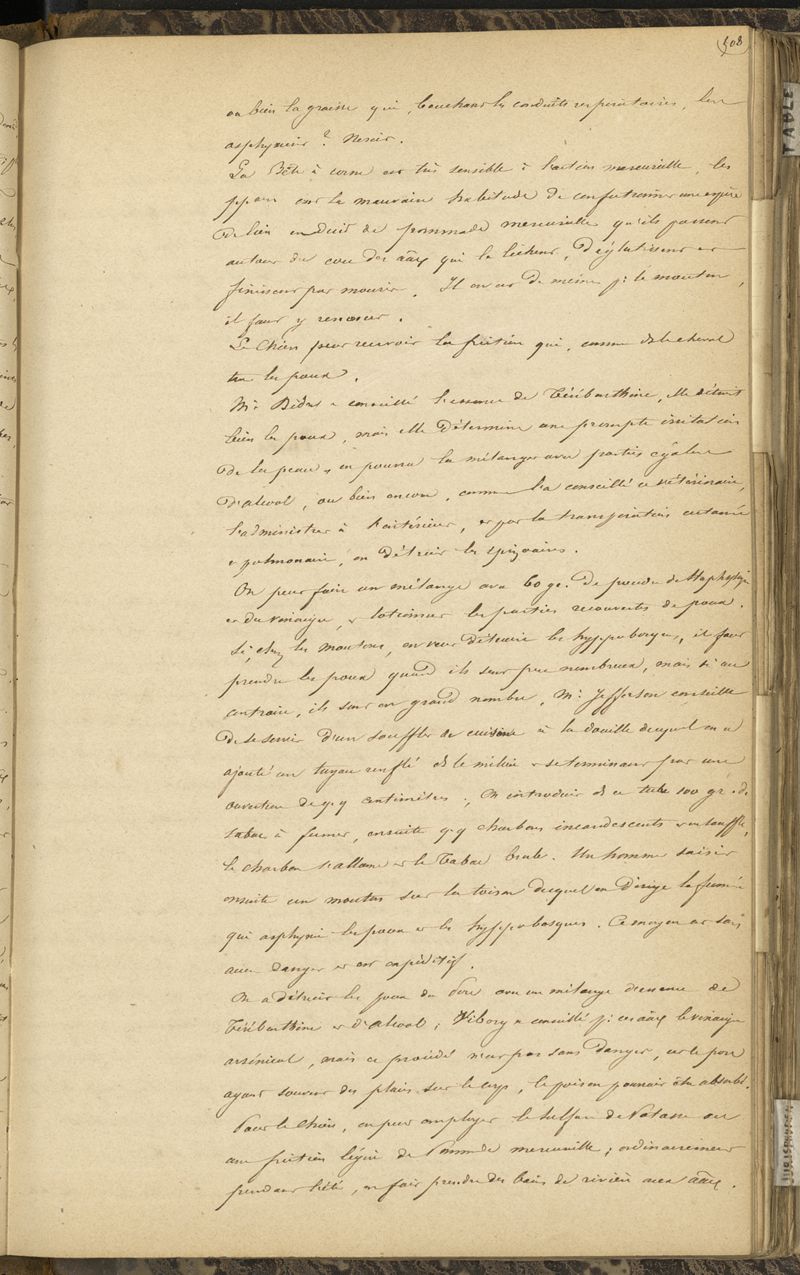 508
ou bien la graisse qui, bouchant les conduits respiratoires, les
asphyxient ? Nescio.
La Bête à corne est très sensible à l'action mercurielle, les
ont la mauvaise habitude de confectionner une espèce
de lien enduit de pommade mercurielle qu'ils passent
autour du cou des aãx qui la lèchent, déglutissent et
finissent par mourir. Il en est de même p: le mouton,
il faut y renoncer.
Le chien peut recevoir la friction qui, comme ds le cheval
tue les poux.
Mr a conseillé l'essence de Térébenthine, elle détruit
bien les poux, mais elle détermine une prompte irritation
de la peau, on pourra la mélanger avec parties égales
d'alcool, ou bien encore, comme l'a conseillé ce vétérinaire,
l'administrer à l'intérieur, et par la transpiration cutanée
et pulmonaire, on détruit les épizoaires.
On peut faire un mélange avec 60 gr. de poudre de Staphysaigre
et du vinaigre, et lotionner les parties recouvertes de poux.
Si, chez les moutons, on veut détruire les hyppobosques, il faut
prendre les poux quand ils sont peu nombreux, mais si au
contraire, ils sont en grand nombre, Mr. Jefferson conseille
de se servir d'un soufflet de cuisine à la douille duquel on a
ajouté un tuyau renflé ds le milieu et se terminant par une
ouverture de q.q centimètres, on introduit ds ce tube 100 gr. de
tabac à fumer, ensuite q.q charbons incandescents et on souffle,
le charbon s'allume et le tabac brule. Un homme saisit
ensuite un mouton sur la toison duquel on dirige la fumée
qui asphyxie les poux et les hyppobosques. Ce moyen est sans
aucun danger et est expéditif.
On a détruit les poux du Porc avec un mélange d'essence de
Térébenthine et d'alcool ; Viborg a conseillé p: ces aãx le vinaigre
arsénical, mais ce procédé n'est pas sans danger, car le porc
ayant souvent des plaies sur le corps, le poison pourrait être absorbé.
Pour le chien, on peut employer le sulfure de Potasse ou
une friction légère de Pommade mercurielle ; ordinairement
pendant l'été, on fait prendre des bains de rivière aux aãx.
TABLE
JURISPRUDENCE